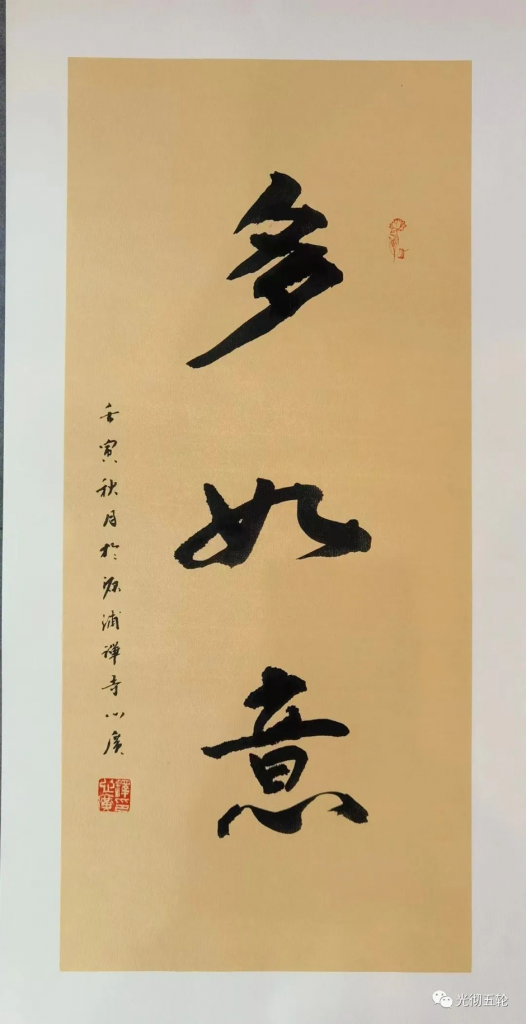 多如意
壬寅秋月於源浦禅寺心廣
光彻五轮